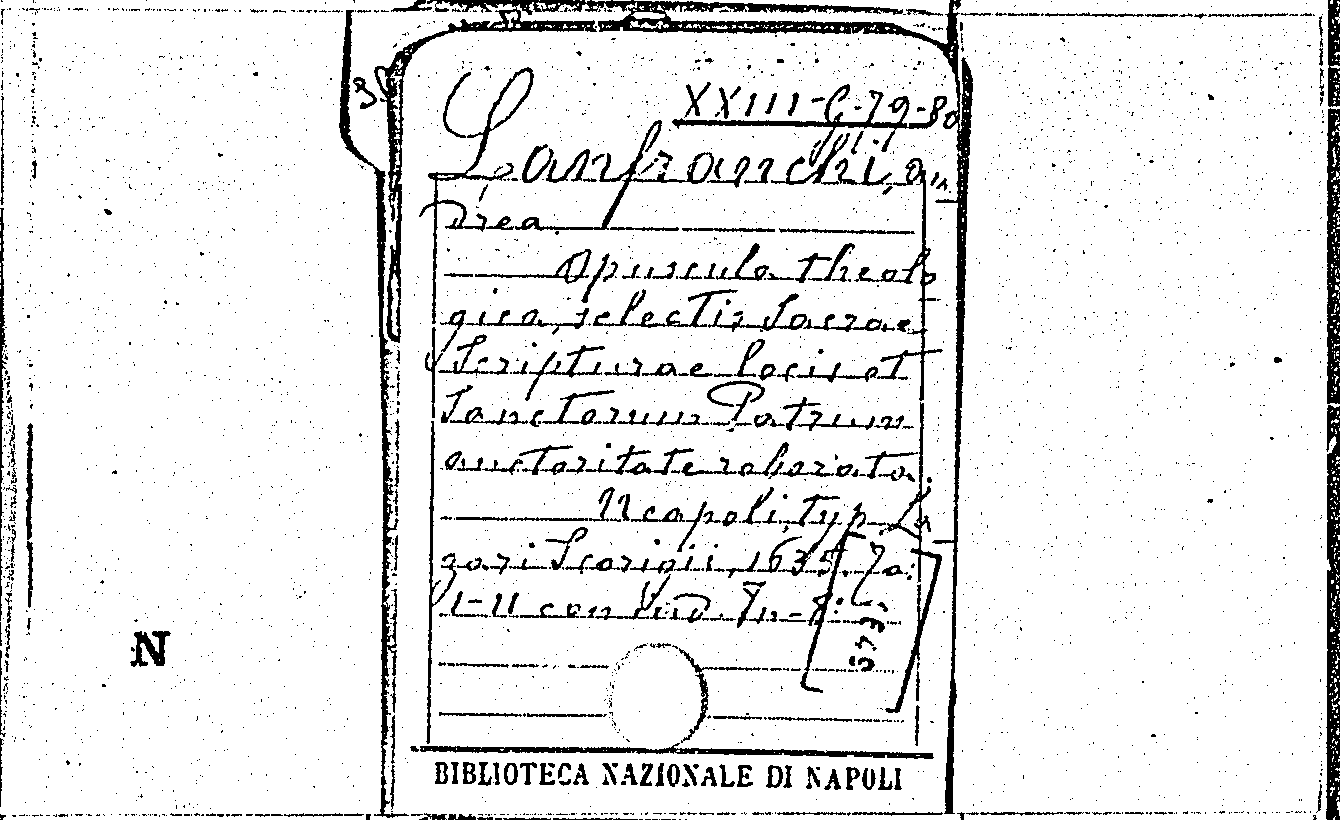 XXIII-C-79-80
Lanfranchi, An
drea.
Opuscula theolo
gica, selectis Sacrae
Scripturae locis et
Sanctorum Patrum
auctoritate roborata.
Neapoli, typ. La
zari Scorigii, 1635.
I-II con In-8°
N
BIBLIOTECA NAZIONALE DI NAPOLI